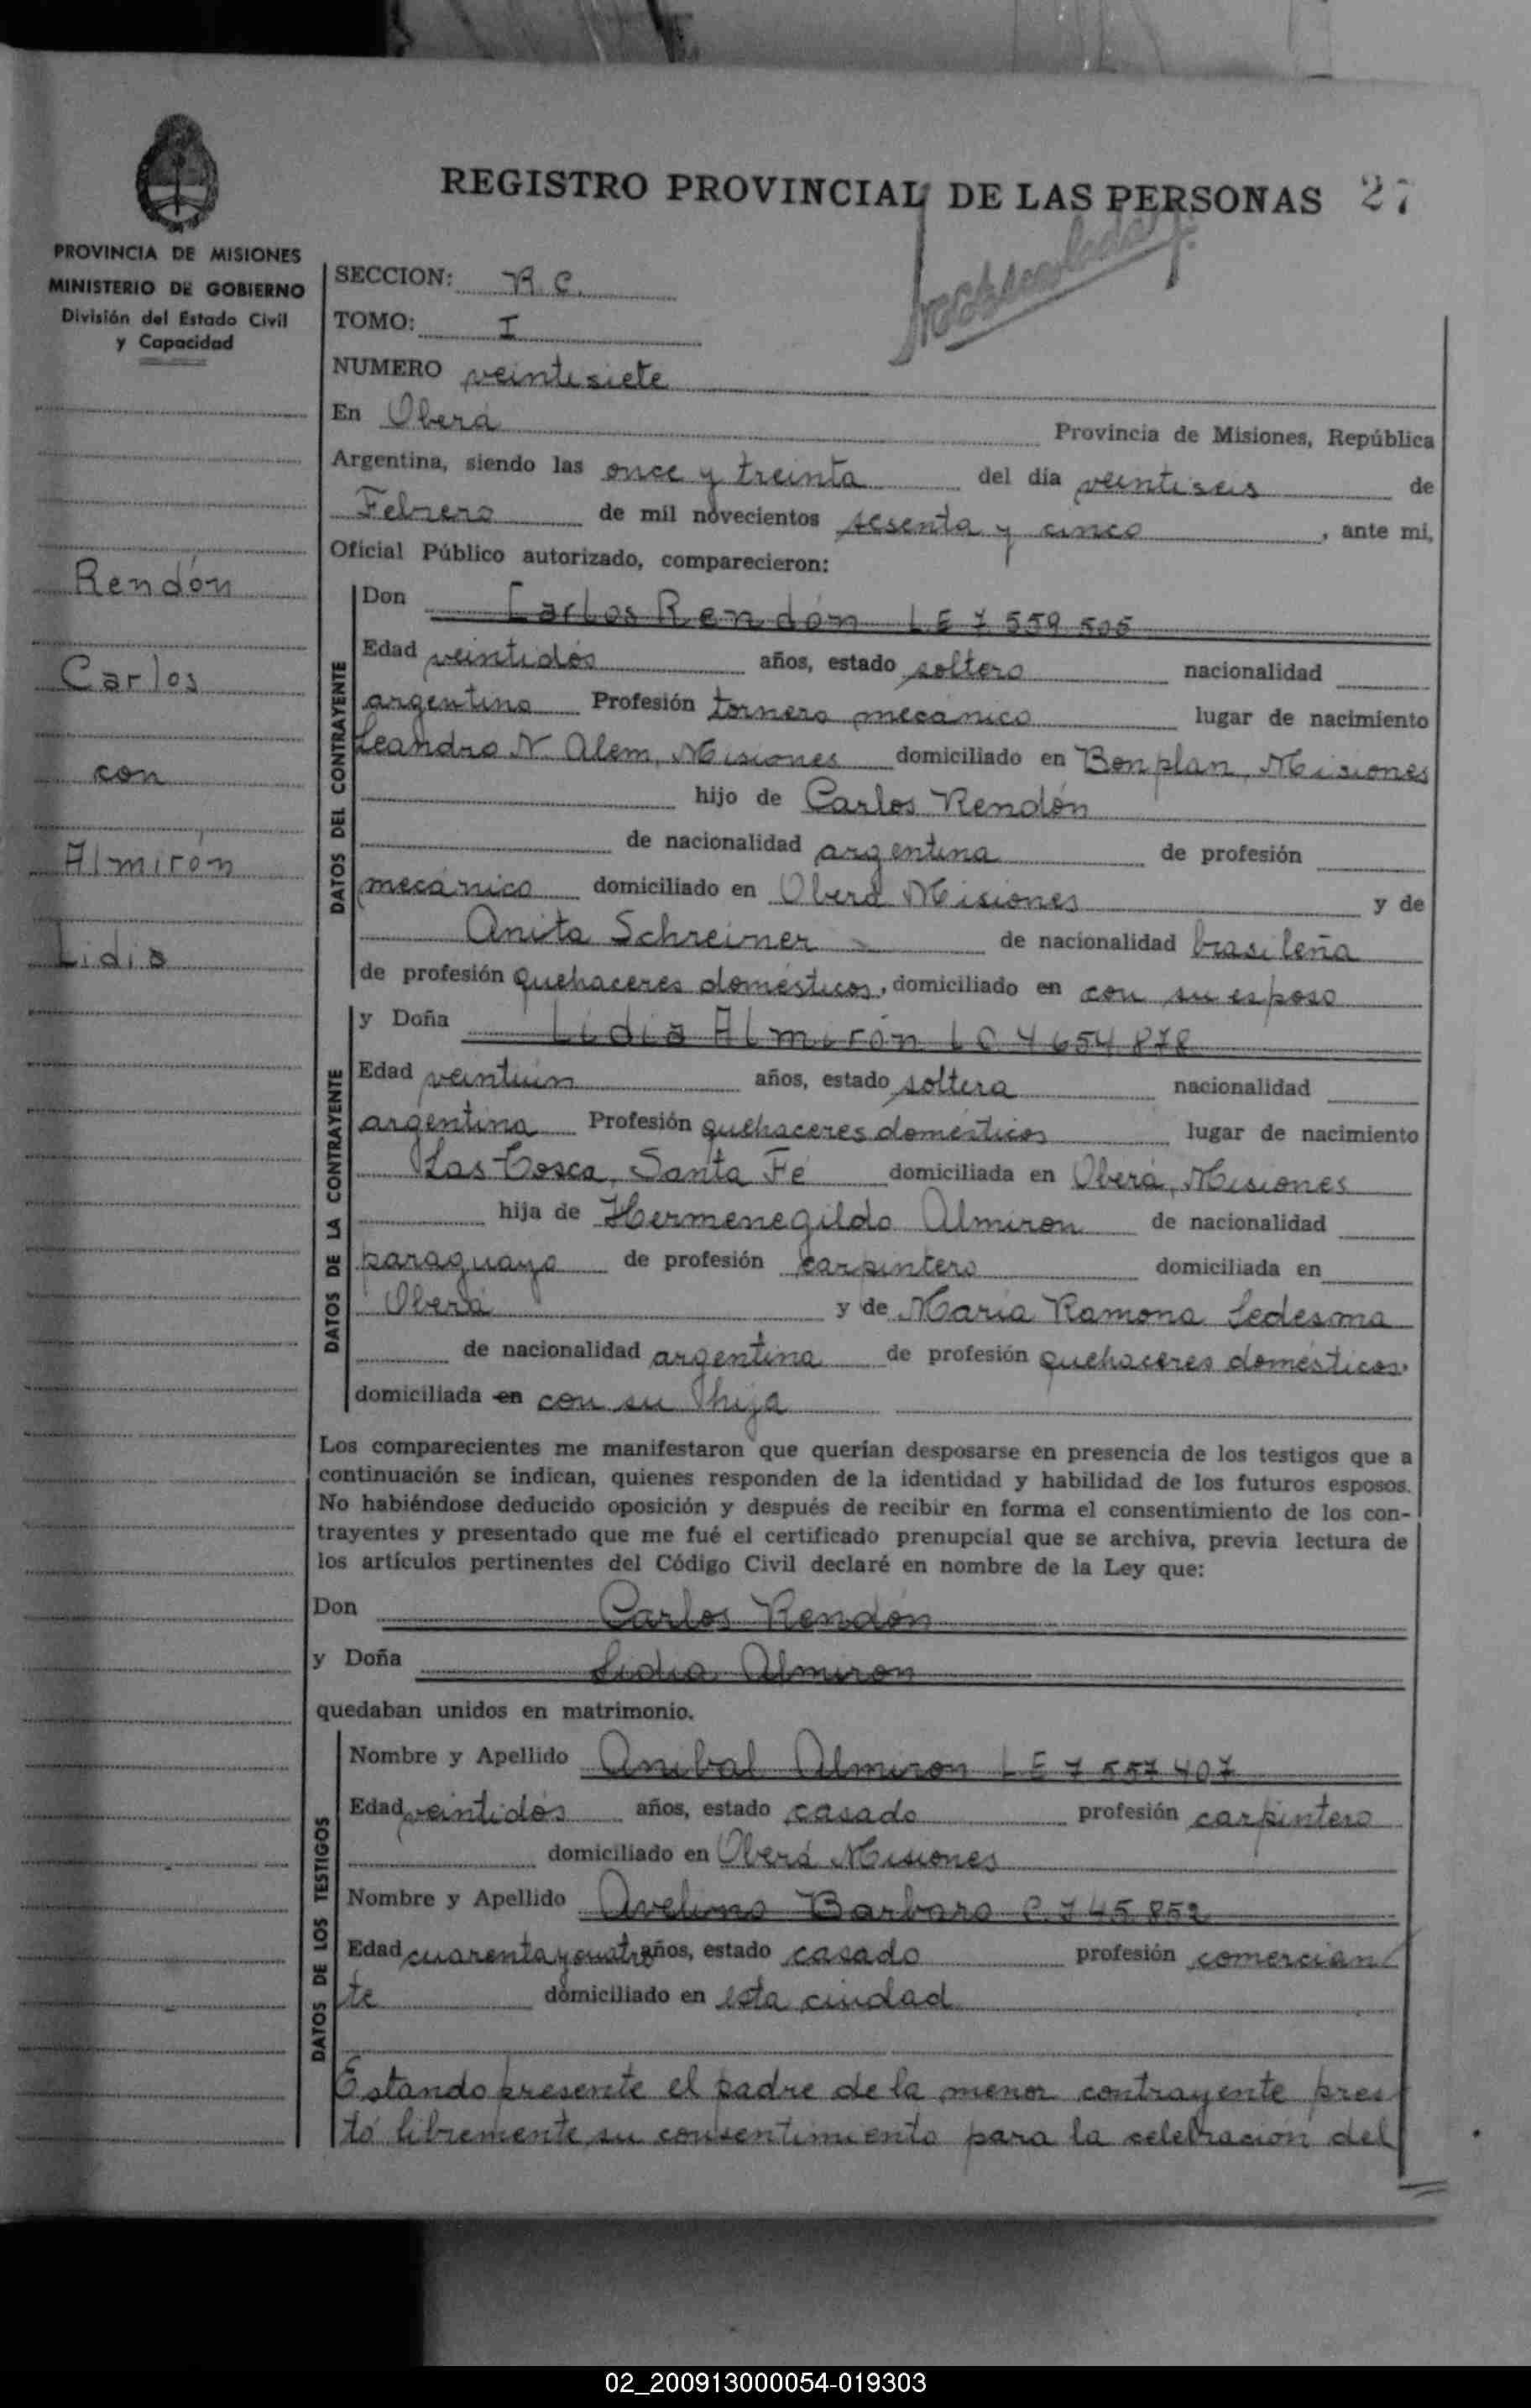 REGISTRO PROVINCIAL DE LAS PERSONAS 27
PROVINCIA DE MISIONES
MINISTERIO DE GOBIERNO
División del Estado Civil
y Capacidad
Rendón
Carlos
con
Almirón
Lidia
SECCION: R C.
TOMO: I
NUMERO veintisiete
En Oberá Provincia de Misiones, República
Argentina, siendo las once y treinta del día veintiseis de
Febrero de mil novecientos sesenta y cinco, ante mi,
Oficial Público autorizado, comparecieron:
DATOS DEL CONTRAYENTE
Don Carlos Rendón LE 7 559 505
Edad veintidós años, estado soltero nacionalidad
argentino Profesión tornero mecánico lugar de nacimiento
Leandro N. Alem, Misiones domiciliado en Bonplan, Misiones
hijo de Carlos Rendón
de nacionalidad argentina de profesión
mecánico domiciliado en Oberá Misiones y de
Anita Schreiner de nacionalidad brasileña
de profesión quehaceres domésticos, domiciliado en con su esposo
DATOS DE LA CONTRAYENTE
y Doña Lidia Almirón LC 4 654 878
Edad veintiún años, estado soltera nacionalidad
argentina Profesión quehaceres domésticos lugar de nacimiento
Las Tosca, Santa Fé domiciliada en Oberá, Misiones
hija de Hermenegildo Almiron de nacionalidad
paraguayo de profesión carpintero domiciliada en
Oberá y de María Ramona Ledesma
de nacionalidad argentina de profesión quehaceres domésticos.
domiciliada en con su hija
Los comparecientes me manifestaron que querían desposarse en presencia de los testigos que a
continuación se indican, quienes responden de la identidad y habilidad de los futuros esposos.
No habiéndose deducido oposición y después de recibir en forma el consentimiento de los con-
trayentes y presentado que me fué el certificado prenupcial que se archiva, previa lectura de
los artículos pertinentes del Código Civil declaré en nombre de la Ley que:
Don Carlos Rendón
y Doña Lidia Almiron
quedaban unidos en matrimonio.
DATOS DE LOS TESTIGOS
Nombre y Apellido Anibal Almiron LE 7 557 407
Edad veintidós años, estado casado profesión carpintero
domiciliado en Oberá Misiones
Nombre y Apellido Avelino Barbaro C. 745 852
Edad cuarenta y cuatro años, estado casado profesión comercian
te domiciliado en esta ciudad
Estando presente el padre de la menor contrayente pres
tó libremente su consentimiento para la celebración del
02_200913000054-019303